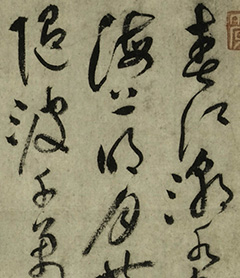 春江潮水
海上明月共
随波千萬